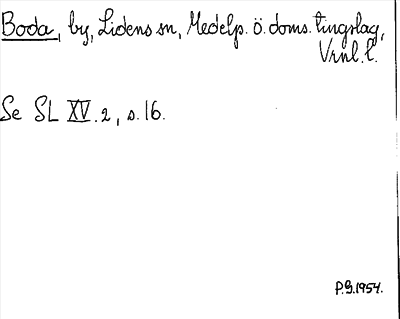 Boda, by, Lidens sn, Medelp. ö. doms. tingslag,
Vrnl. l.
Se SL XV. 2, s. 16.
P.G. 1954.